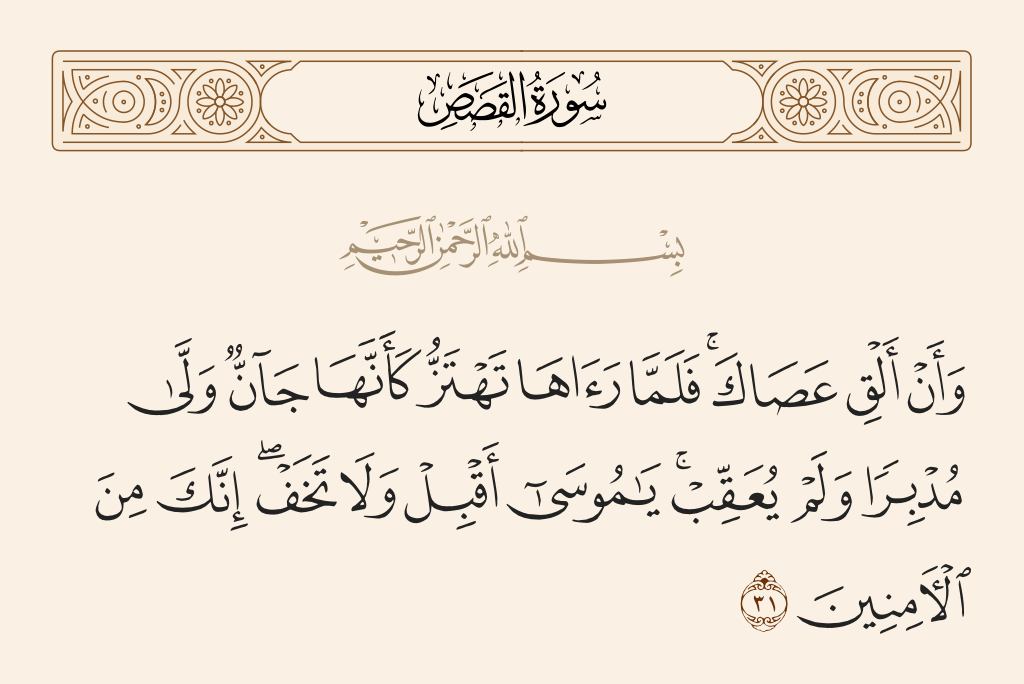 سُورَةُ القَصَصِ
بِسْمِ ٱللَّهِ ٱلرَّحْمَٰنِ ٱلرَّحِيمِ
وَأَنْ أَلْقِ عَصَاكَ ۚ فَلَمَّا رَءَاهَا تَهْتَزُّ كَأَنَّهَا جَآنٌّ وَلَّىٰ
مُدْبِرًا وَلَمْ يُعَقِّبْ ۚ يَـٰمُوسَىٰٓ أَقْبِلْ وَلَا تَخَفْ ۖ إِنَّكَ مِنَ
ٱلْـَٔامِنِينَ ٣١